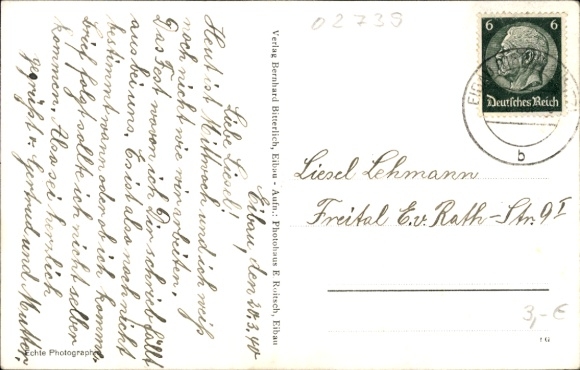 Eibau, den 20.3.40
Liebe Liesel!
Heut ist Mittwoch und ich weiß
noch nicht wie wir arbeiten.
Das Fest wovon ich Dir schrieb fällt
aus bei uns. Es ist also noch nicht
bestimmt wann oder ob ich komme.
Brief folgt sollte ich nicht selber
kommen. Also sei herzlich
gegrüßt v. Gertrud und Mutter.
Echte Photographie
Verlag Bernhard Bitterlich, Eibau - Aufn.: Photohaus E Roitsch, Eibau
02739
6 6
Deutsches Reich
b
Liesel Lehmann
Freital E.v. Rath-Str. 9 I
3,-€